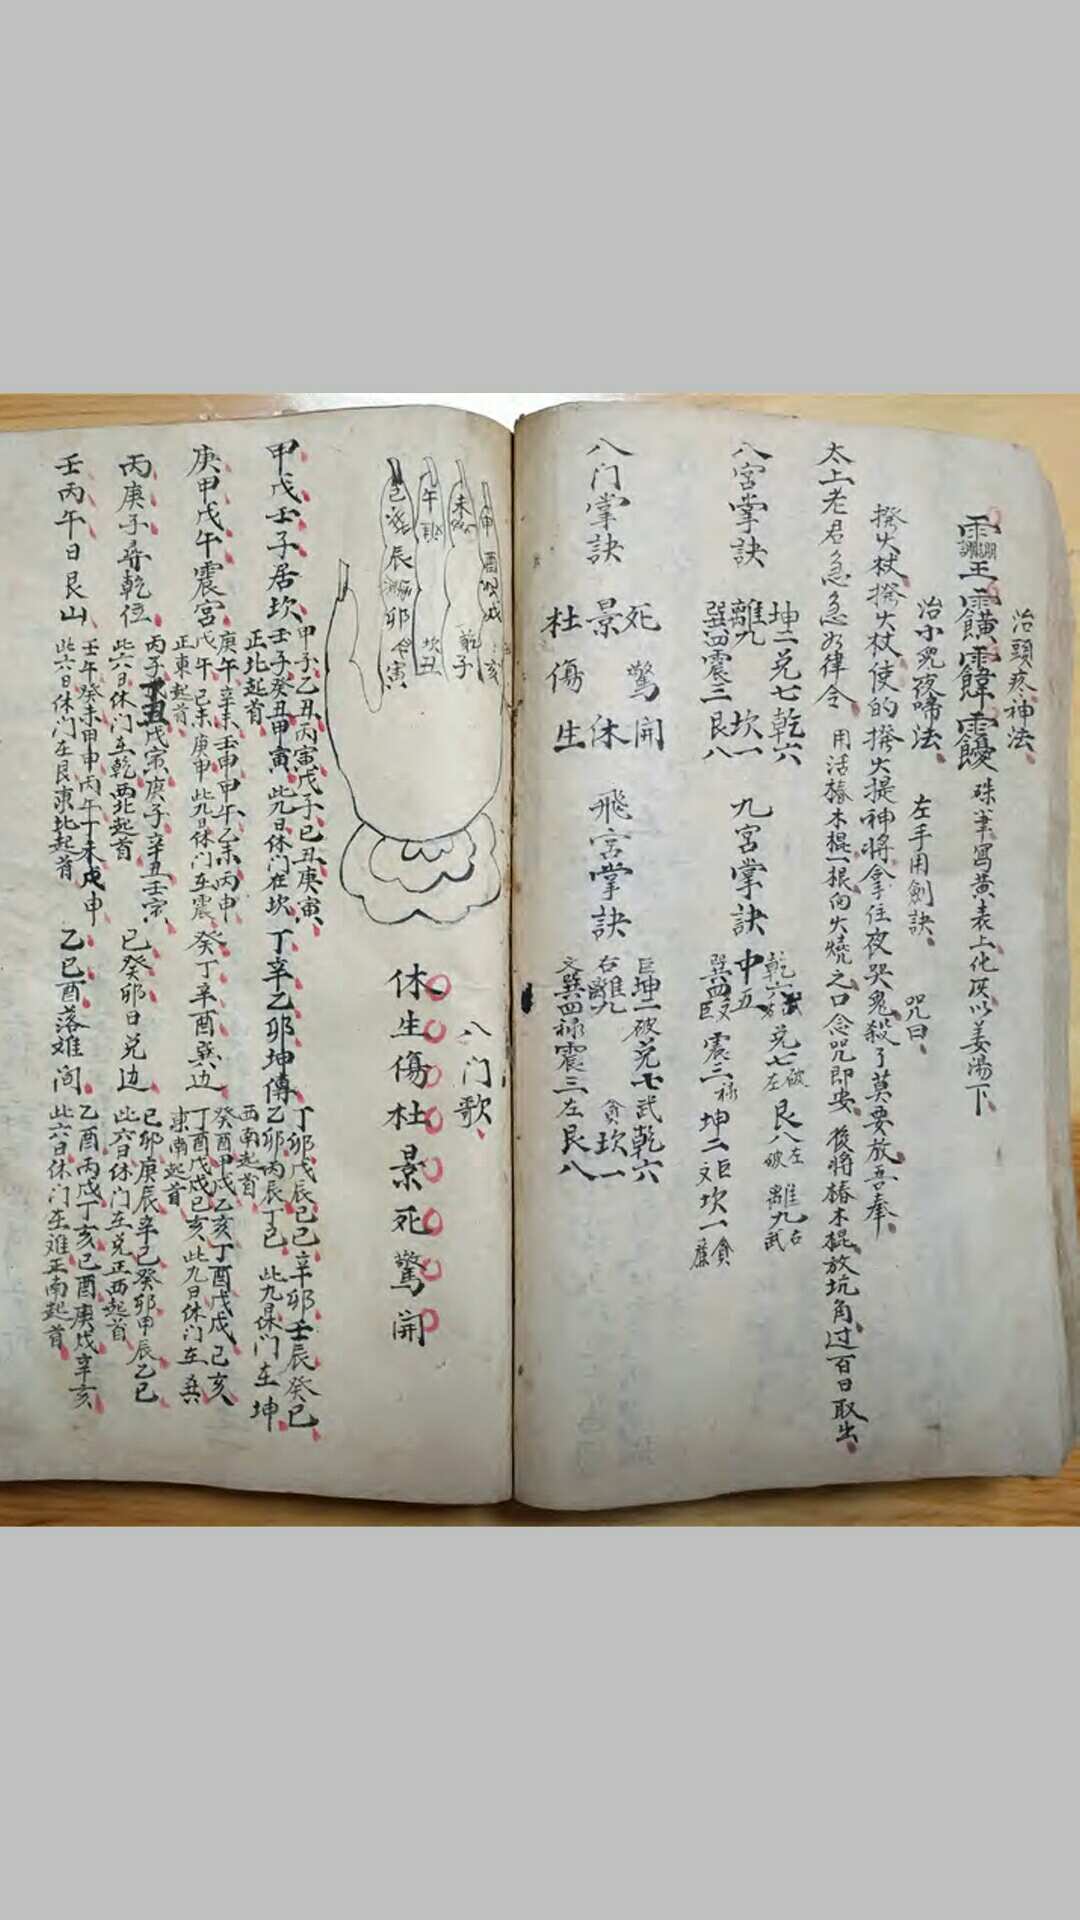 治頭疼神法
硃筆寫黃表上化灰以姜湯下
治小兒夜啼法 左手用劍訣 咒曰
撥火杖撥火杖使的撥火提神將拿住夜哭鬼殺了莫要放吾奉
太上老君急急如律令 用活椿木棍一根向火燒之口念咒即安 後將椿木棍放坑角過百日取出
八宮掌訣
坤二兑七乾六
離九 坎一
巽四震三艮八
九宮掌訣
乾六 兑七破左 艮八左破 離九右武
中五
巽四文巨 震三禄 坤二巨文 坎一貪廉
八门掌訣
死驚開
景 休
杜傷生
飛宮掌訣
巨坤二破兑七武乾六
右離九 貪坎一
文巽四禄震三左艮八
申 酉 戌 亥
未 乾子
午 坎丑
巳 辰 卯 寅
八门歌
休生傷杜景死驚開
甲戊壬子居坎
甲子乙丑丙寅戊子己丑庚寅
壬子癸丑甲寅 此九日休门在坎
正北起首
丁辛乙卯坤傳
丁卯戊辰己巳辛卯壬辰癸巳
乙卯丙辰丁巳 此九日休门在坤
西南起首
庚甲戊午震宮
庚午辛未壬申甲午乙未丙申
戊午己未庚申此九日休门在震
正東起首
癸丁辛酉巽边
癸酉甲戌乙亥丁酉戊戌己亥
丁酉戊戌己亥 此九日休门在巽
東南起首
丙庚子尋乾位
丙子丁丑戊寅庚子辛丑壬寅
此六日休门在乾西北起首
己癸卯日兑边
己卯庚辰辛巳癸卯甲辰乙巳
此六日休门在兑正西起首
壬丙午日艮山
壬午癸未甲申丙午丁未戊申
此六日休门在艮東北起首
乙己酉落难间
乙酉丙戌丁亥己酉庚戌辛亥
此六日休门在难正南起首